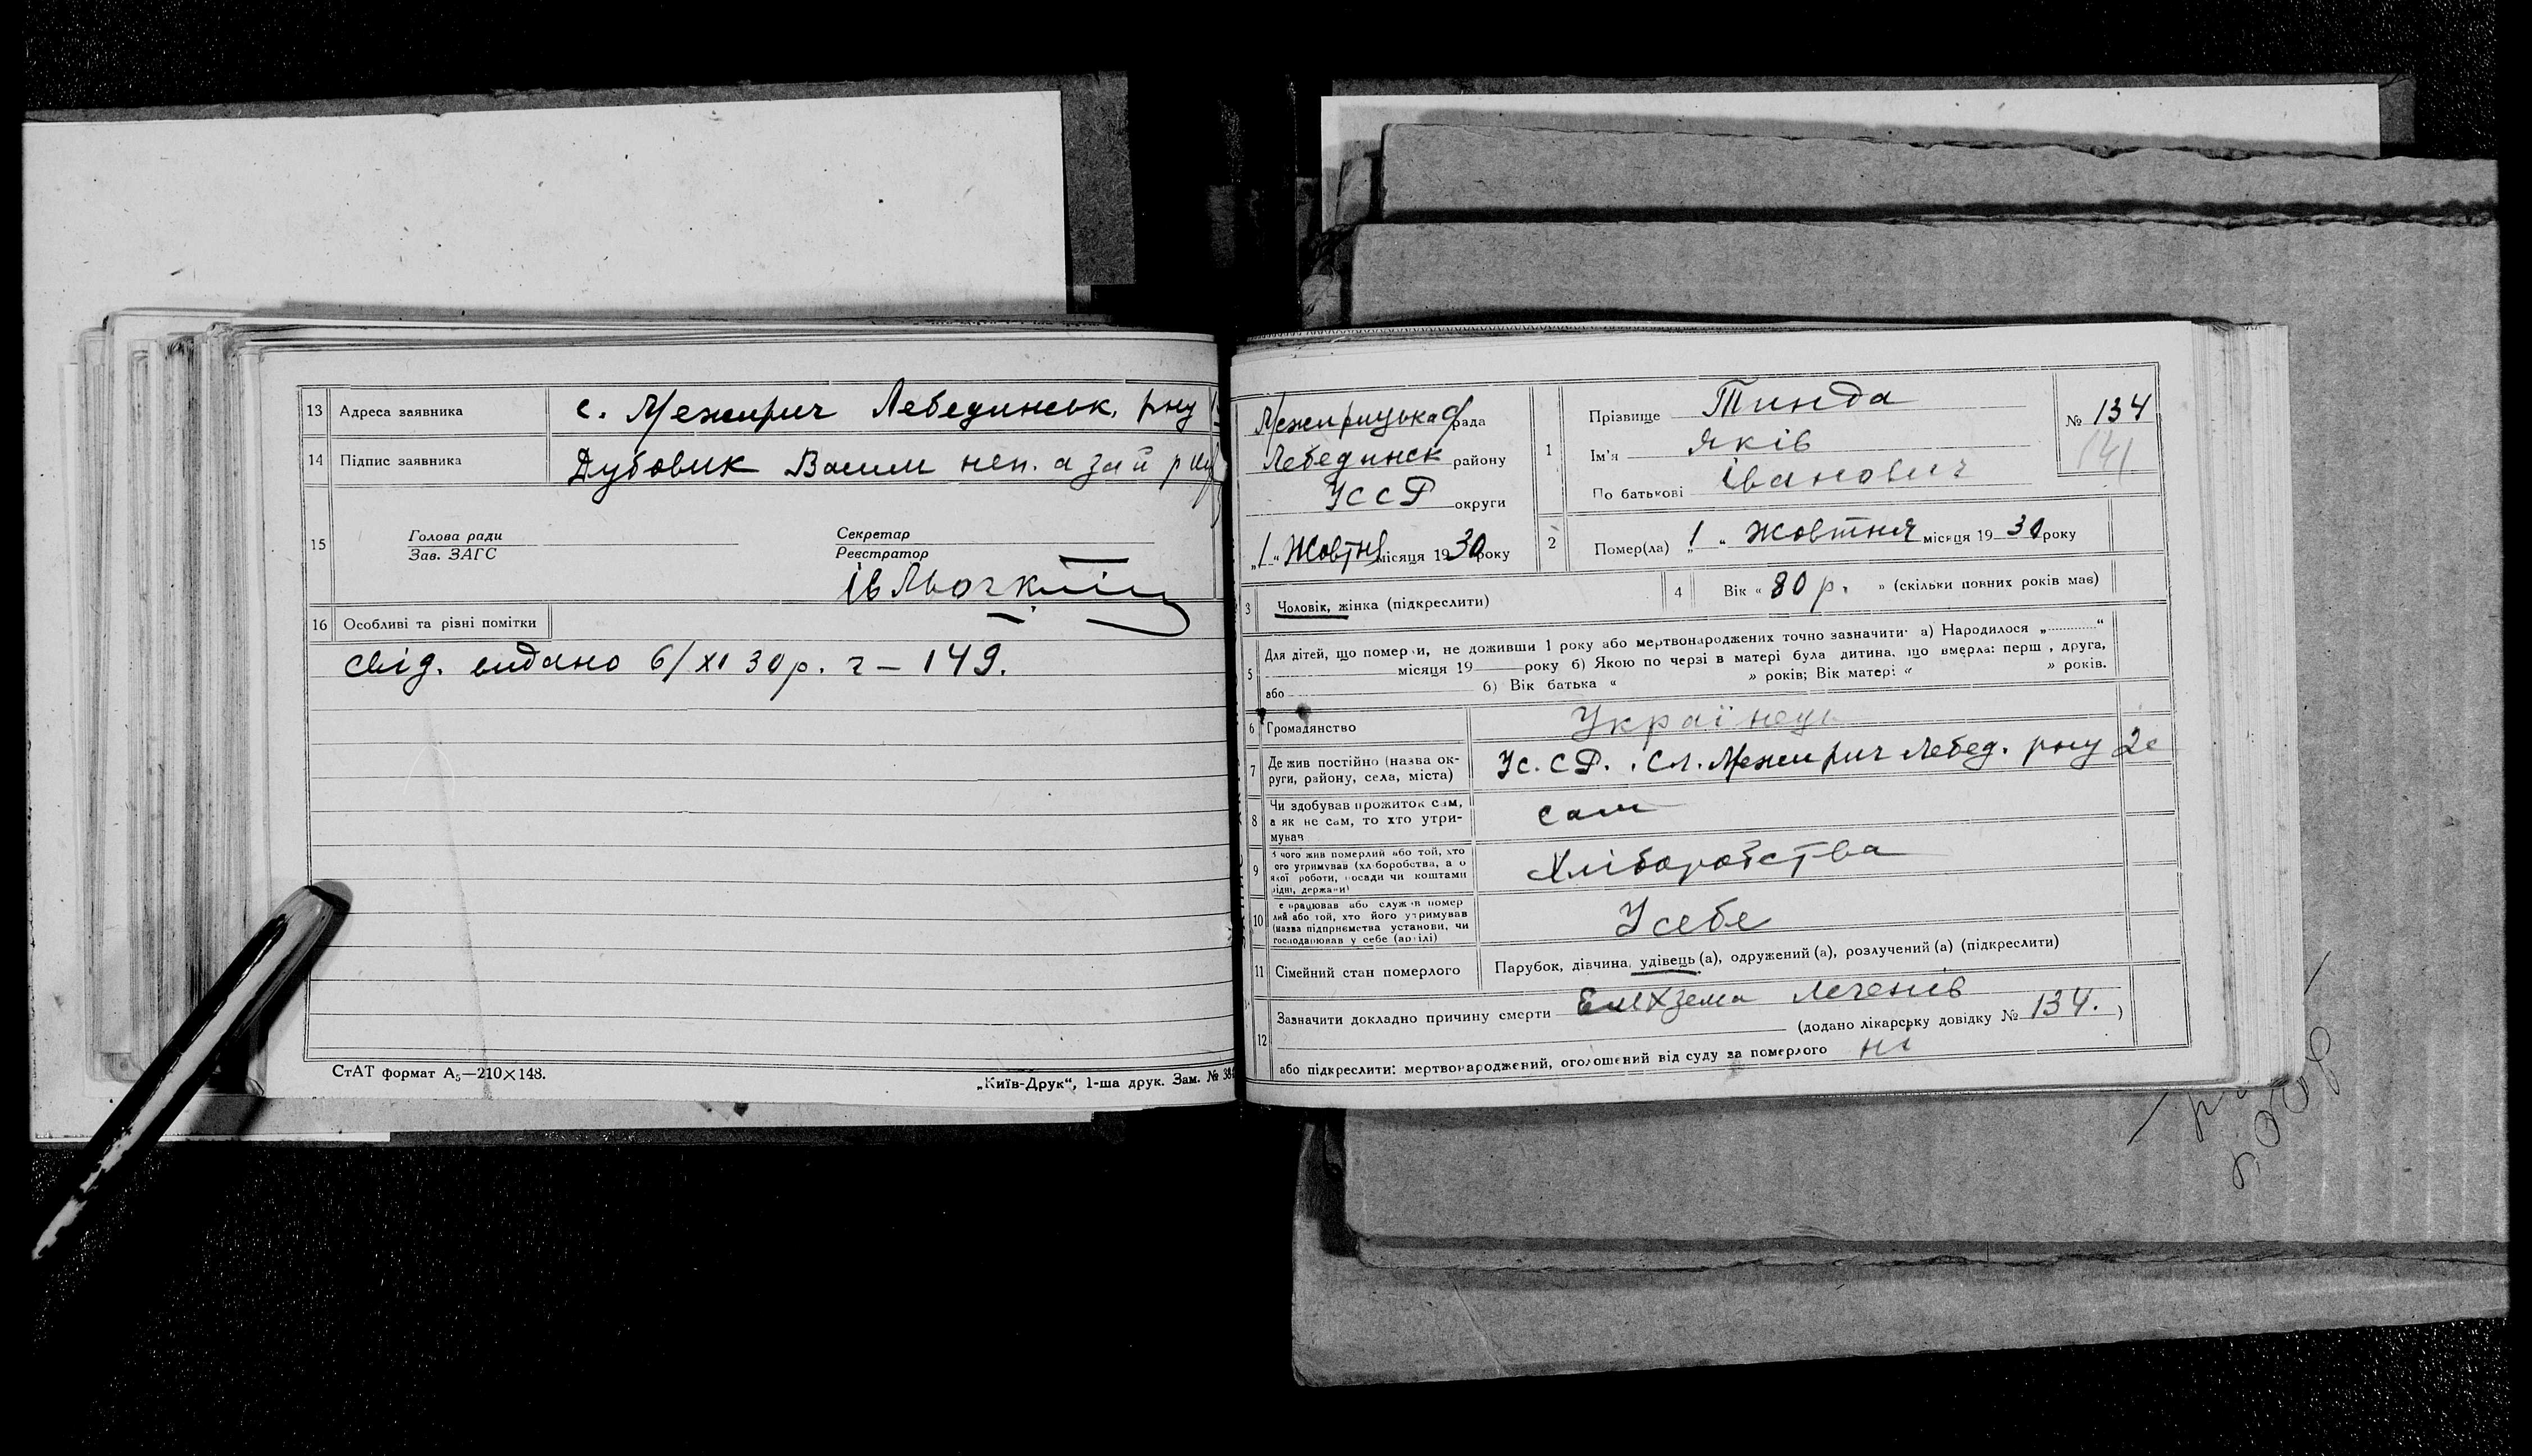 13 Адреса заявника с. Межирич Лебединськ. рну
14 Підпис заявника Дубовик Васил неп. а за й
15 Голова ради
Зав. ЗАГС
Секретар
Реєстратор
16 Особливі та різні помітки
свід. видано 6/XI 30 р. ч – 149.
СтАТ формат А₅—210×148.
„Київ-Друк“, 1-ша друк. Зам. №
Межирицька рада
Лебединск району
УССР округи
„1“ Жовтня місяця 1930 року
1 Прізвище Тинда
Ім'я Яків
По батькові Іванович
№ 134
141
2 Помер(ла) „1“ жовтня місяця 1930 року
3 Чоловік, жінка (підкреслити)
4 Вік « 80 р. » (скільки повних років має)
5 Для дітей, що померли, не доживши 1 року або мертвонароджених точно зазначити: а) Народилося „ “
місяця 19 року б) Якою по черзі в матері була дитина, що вмерла: перша, друга,
або б) Вік батька « » років; Вік матері « » років.
6 Громадянство Українець
7 Де жив постійно (назва ок-
руги, району, села, міста) УС.СР. Сл. Межирич Лебед. рну
8 Чи здобував прожиток сам,
а як не сам, то хто утри-
мував сам
9 З чого жив померлий або той, хто
його утримував (хліборобства, а о
якої роботи, посади чи коштами
рідні, держави) Хліборобства
10 Де працював або служив помер
лий або той, хто його утримував
(назва підприємства установи, чи
господарював у себе (артілі) У себе
11 Сімейний стан померлого Парубок, дівчина, удівець (а), одружений (а), розлучений (а) (підкреслити)
12 Зазначити докладно причину смерти Емхзема легенів
(додано лікарську довідку № 134. )
або підкреслити: мертвонароджений, оголошений від суду за померлого ні